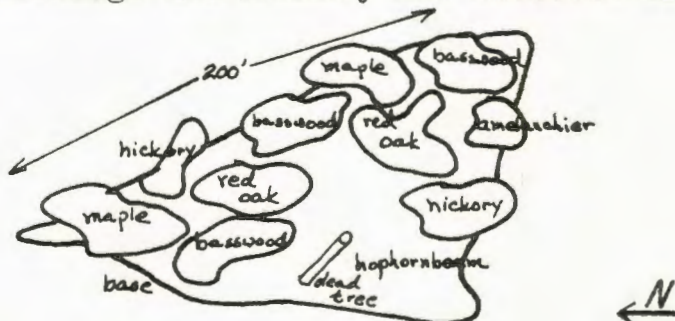 200'
maple
basswood
basswood
red
oak
amelanchier
hickory
red
oak
hickory
maple
basswood
hophornbeam
dead
tree
base
N